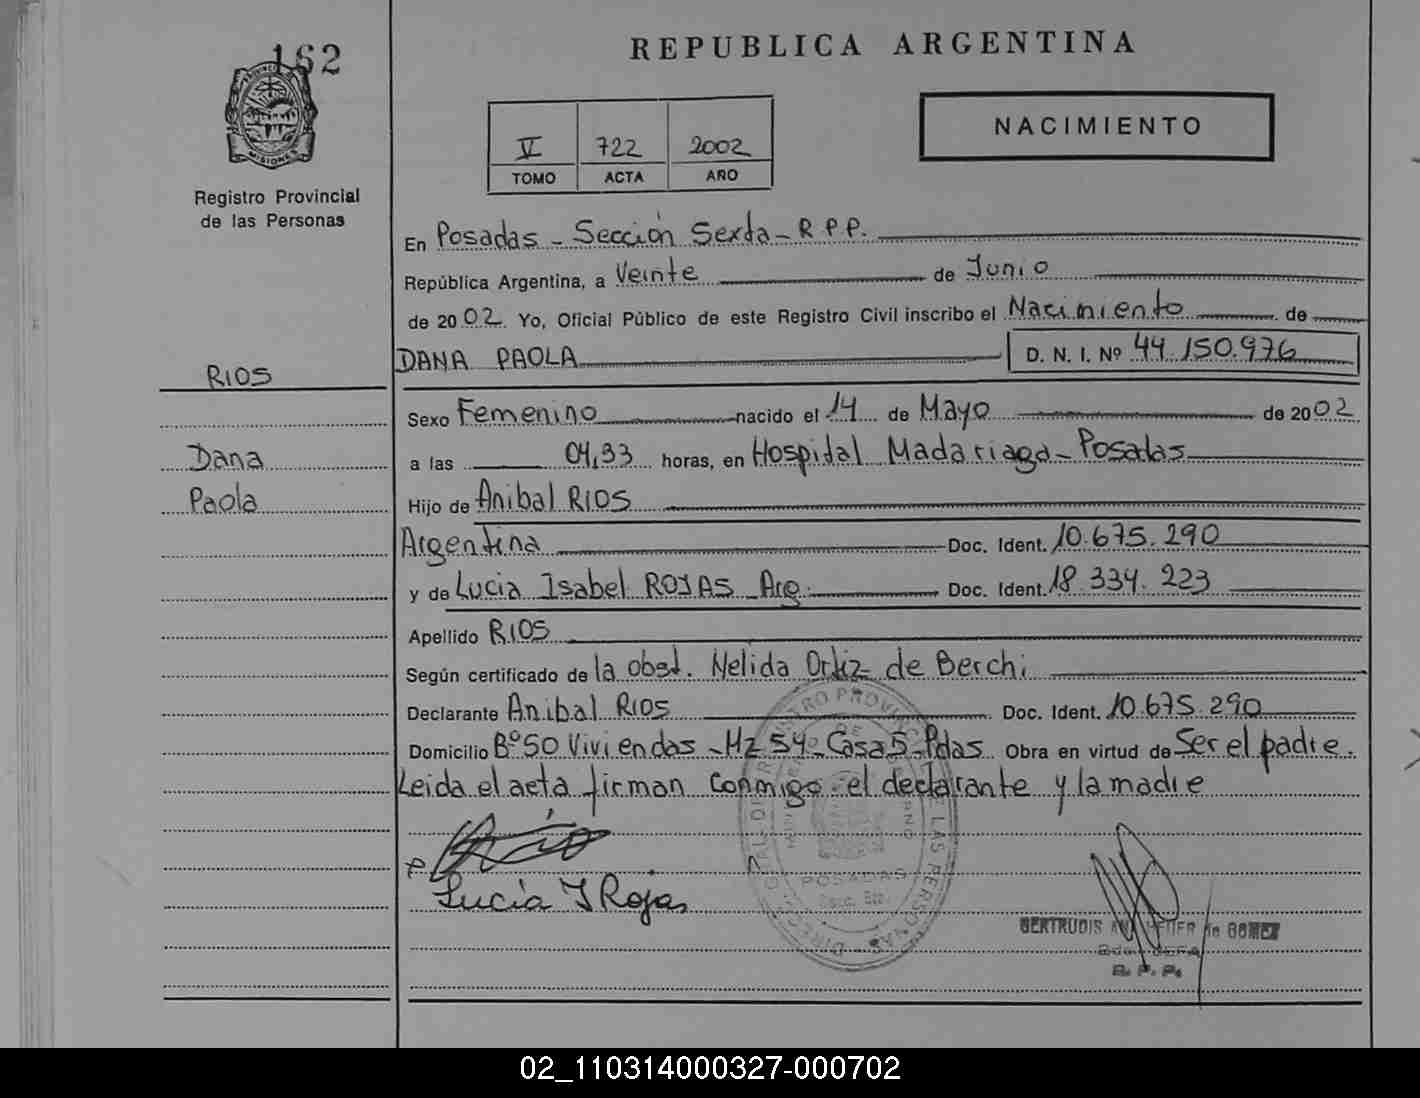 162
PROVINCIA DE
MISIONES
Registro Provincial
de las Personas
REPUBLICA ARGENTINA
V 722 2002
TOMO ACTA AÑO
NACIMIENTO
En Posadas - Sección Sexta - R P P.
República Argentina, a Veinte de Junio
de 2002. Yo, Oficial Público de este Registro Civil inscribo el Nacimiento de
DANA PAOLA D. N. I. Nº 44.150.976
RIOS
Sexo Femenino nacido el 14 de Mayo de 2002
Dana
a las 04,33 horas, en Hospital Madariaga - Posadas
Paola
Hijo de Anibal RIOS
Argentina Doc. Ident. 10.675.290
y de Lucia Isabel ROJAS Arg. Doc. Ident. 18.334.223
Apellido RIOS
Según certificado de la obst. Nelida Ortiz de Berchi
Declarante Anibal RIOS Doc. Ident. 10.675.290
Domicilio Bº 50 Viviendas - Mz 54 - Casa 5 - Pdas Obra en virtud de Ser el padre.
Leida el acta firman conmigo el declarante y la madre
Lucia I Rojas
POSADAS
GERTRUDIS de
JEFA
R. P. P.
02_110314000327-000702